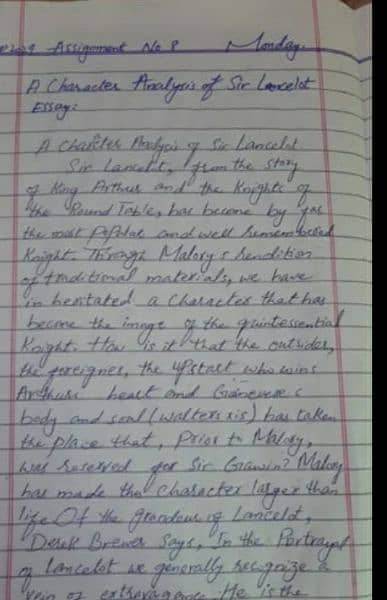 2029 Assignment No 8 Monday.
A Character Analysis of Sir Lancelot
Essay:
A Charcter Analysis of Sir Lancelot
Sir Lancelot, from the story
of King Arthur and the Knights of
the Round Table, has become by far
the most Popular and well remembered
Knight. Through Malory's rendition
of traditional materials, we have
inheritated a character that has
become the image of the quintessential
Knight. How is it that the outsider,
the foreigner, the upstart who wins
Arthurs heart and Gunevere's
body and soal (walters xis) has taken
the place that, Prior to Malory,
was reserved for Sir Gawin? Malory
has made this character larger than
life. Of the grandeur of Lancelot,
Derek Brewer says, In the Portrayal
of Lancelot we generally recognize a
vein of extravagance. He is the